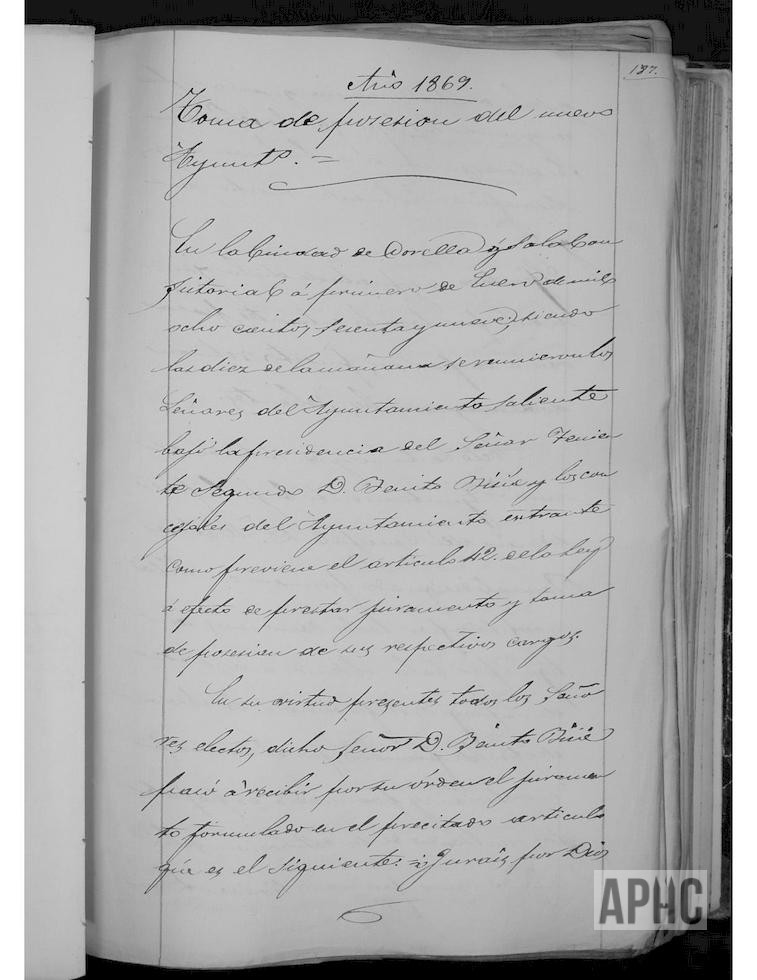 137.
Año 1869.
Toma de posesion del nuevo
Ayuntº. =
En la Ciudad de Dorella y Sala Con
sistorial á primero de Enero de mil
ocho cientos sesenta y nueve; siendo
las diez de la mañana se reunieron los
Señores del Ayuntamiento saliente
bajo la presidencia del Señor Tenien
te Segundo D. Benito y los con
cejales del Ayuntamiento entrante
como previene el articulo 42. de la Ley
á efecto de prestar juramento y toma
de posesion de sus respectivos cargos.
En su virtud presentes todos los Seño
res electos, dicho Señor D. Benito
pasó á recibir por su órden el juramen
to formulado en el precitado articulo
que es el siguiente: =¿Jurais por Dios
APHC